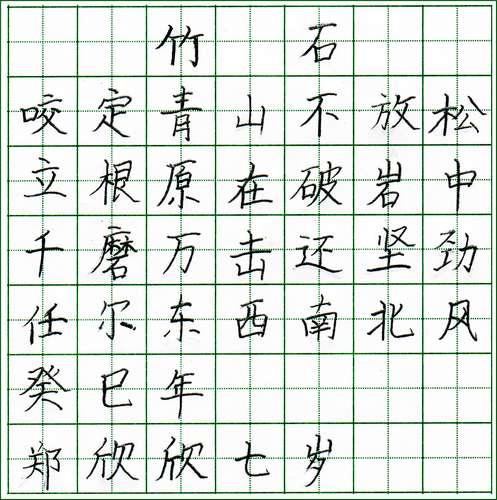 竹石
咬定青山不放松
立根原在破岩中
千磨万击还坚劲
任尔东西南北风
癸巳年
郑欣欣七岁